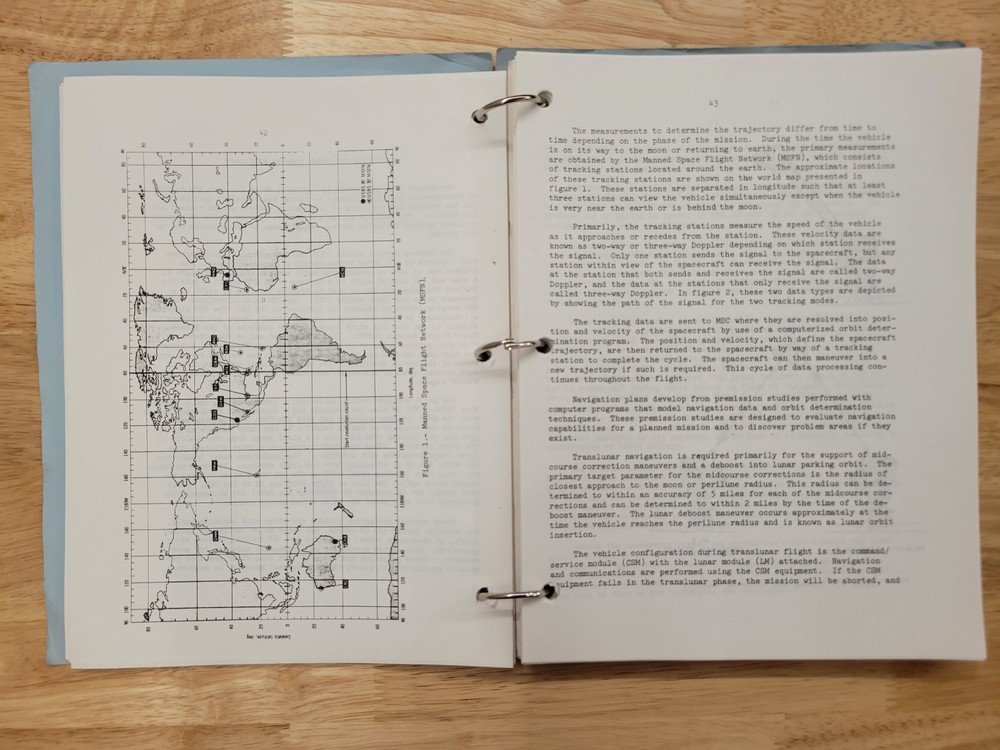 42
Geodetic latitude, deg
Longitude, deg
Start revolution count
Figure 1.- Manned Space Flight Network (MSFN).
43
The measurements to determine the trajectory differ from time to
time depending on the phase of the mission. During the time the vehicle
is on its way to the moon or returning to earth, the primary measurements
are obtained by the Manned Space Flight Network (MSFN), which consists
of tracking stations located around the earth. The approximate locations
of these tracking stations are shown on the world map presented in
figure 1. These stations are separated in longitude such that at least
three stations can view the vehicle simultaneously except when the vehicle
is very near the earth or is behind the moon.
Primarily, the tracking stations measure the speed of the vehicle
as it approaches or recedes from the station. These velocity data are
known as two-way or three-way Doppler depending on which station receives
the signal. Only one station sends the signal to the spacecraft, but any
station within view of the spacecraft can receive the signal. The data
at the station that both sends and receives the signal are called two-way
Doppler, and the data at the stations that only receive the signal are
called three-way Doppler. In figure 2, these two data types are depicted
by showing the path of the signal for the two tracking modes.
The tracking data are sent to MSC where they are resolved into posi-
tion and velocity of the spacecraft by use of a computerized orbit deter-
mination program. The position and velocity, which define the spacecraft
trajectory, are then returned to the spacecraft by way of a tracking
station to complete the cycle. The spacecraft can then maneuver into a
new trajectory if such is required. This cycle of data processing con-
tinues throughout the flight.
Navigation plans develop from premission studies performed with
computer programs that model navigation data and orbit determination
techniques. These premission studies are designed to evaluate navigation
capabilities for a planned mission and to discover problem areas if they
exist.
Translunar navigation is required primarily for the support of mid-
course correction maneuvers and a deboost into lunar parking orbit. The
primary target parameter for the midcourse corrections is the radius of
closest approach to the moon or perilune radius. This radius can be de-
termined to within an accuracy of 5 miles for each of the midcourse cor-
rections and can be determined to within 2 miles by the time of the de-
boost maneuver. The lunar deboost maneuver occurs approximately at the
time the vehicle reaches the perilune radius and is known as lunar orbit
insertion.
The vehicle configuration during translunar flight is the command/
service module (CSM) with the lunar module (LM) attached. Navigation
and communications are performed using the CSM equipment. If the CSM
equipment fails in the translunar phase, the mission will be aborted, and